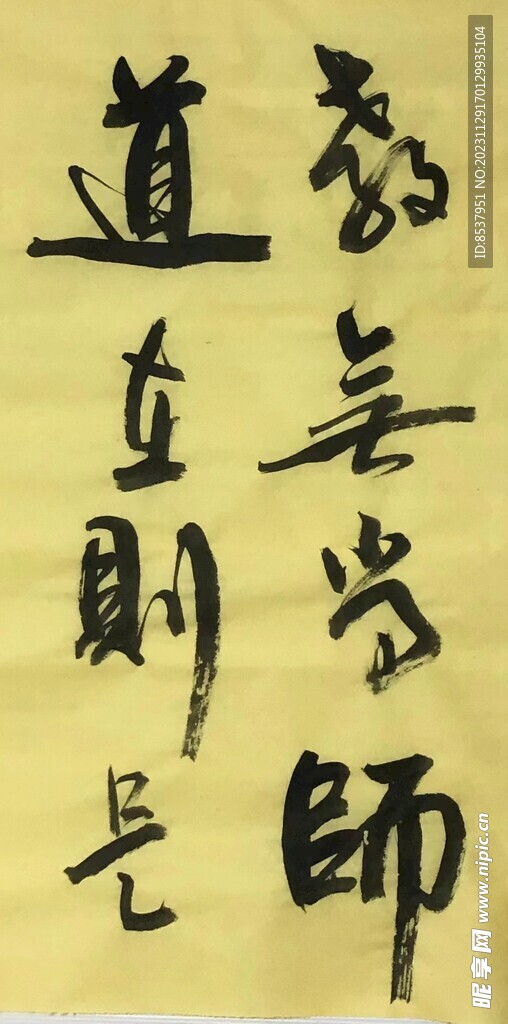 教無常師
道在則是
ID:8537951 NO:20231129170129935104
昵享网 www.nipic.cn